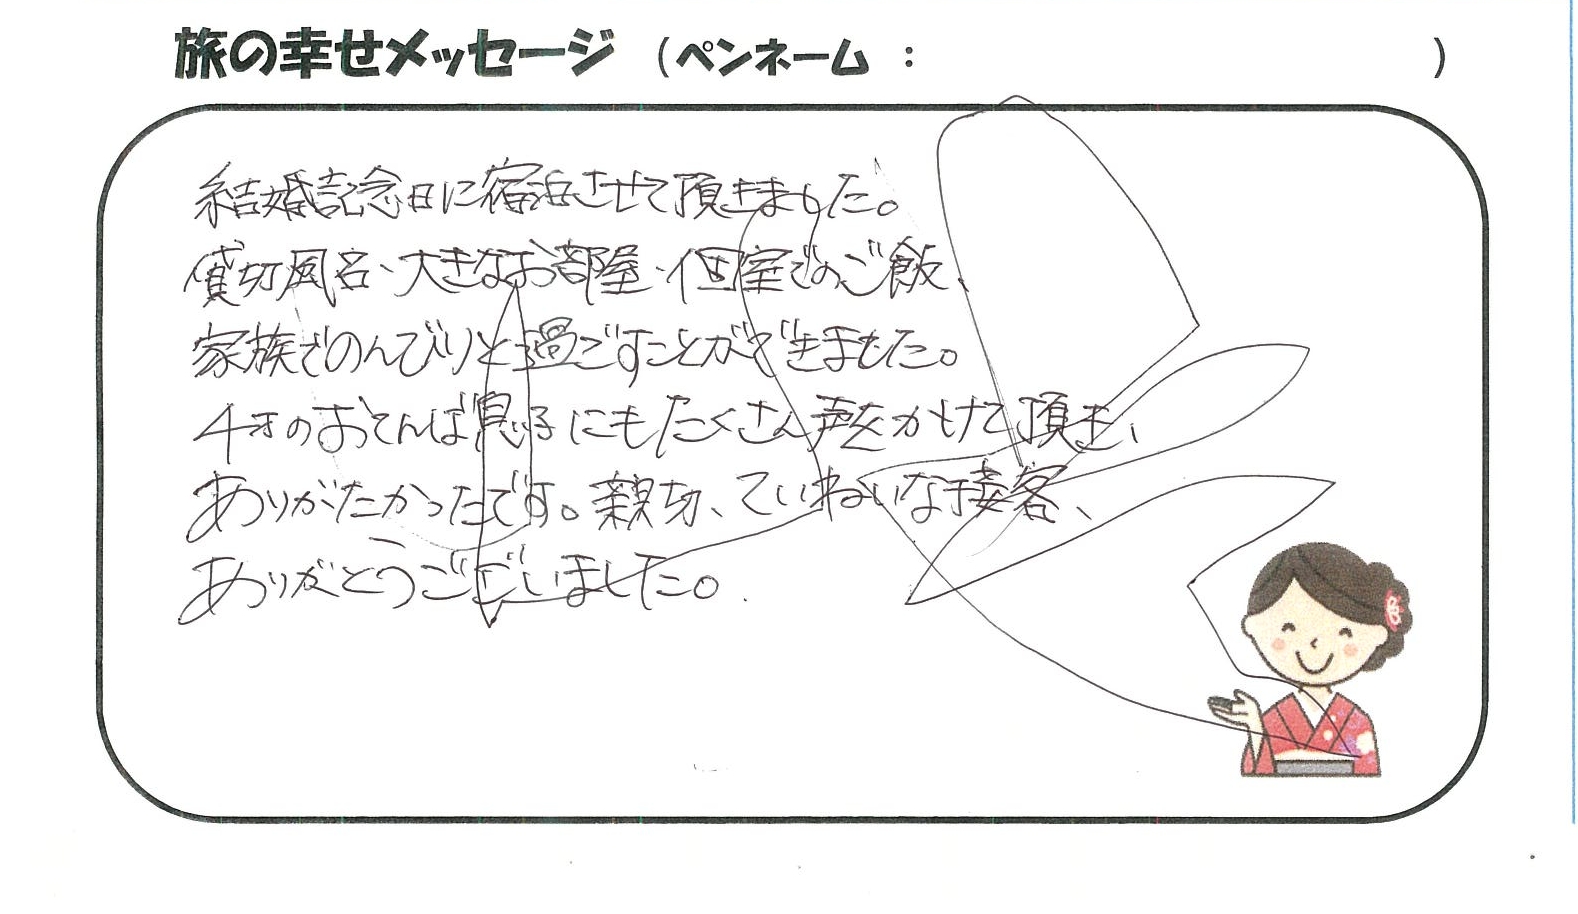 旅の幸せメッセージ (ペンネーム : )
結婚記念日に宿泊させて頂きました。
貸切風呂、大きなお部屋、個室でのご飯、
家族でのんびりと過ごすことができました。
4才のおてんば息子にもたくさん声をかけて頂き、
ありがたかったです。親切、ていねいな接客、
ありがとうございました。